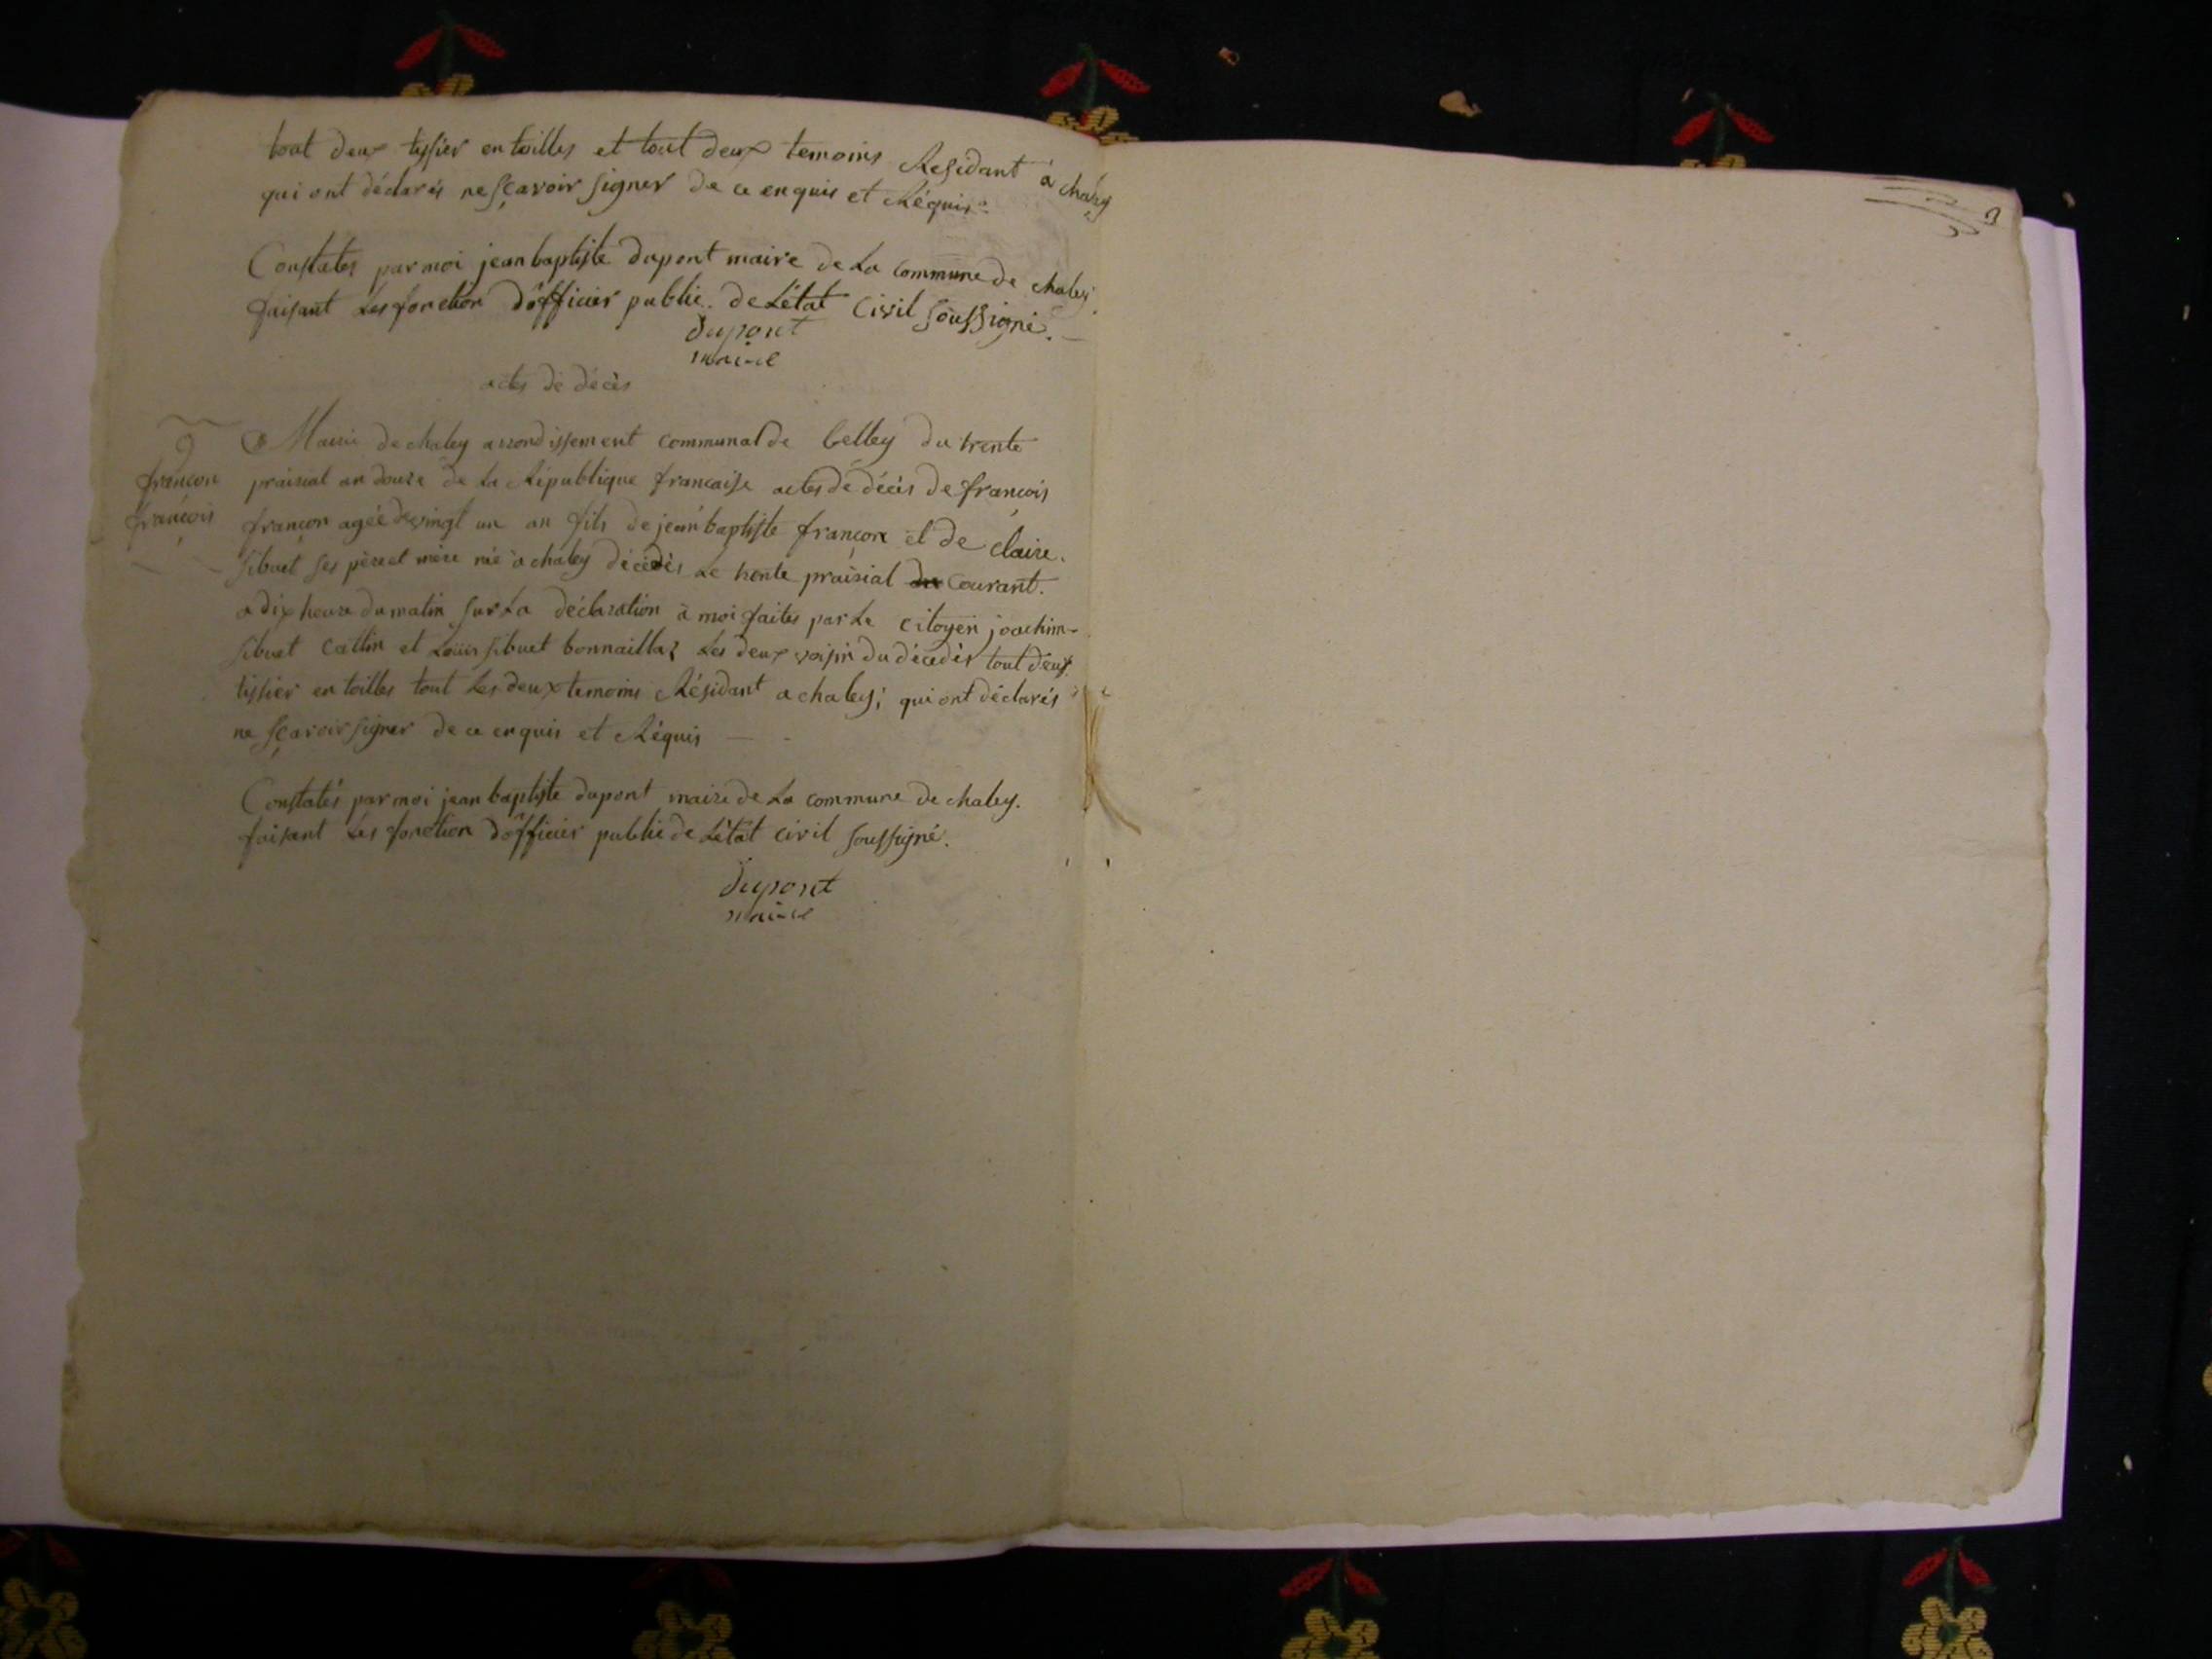 tout deux tissier en toilles et tout deux temoins Residant à chaley
qui ont déclarés ne sçavoir signer de ce enquis et Réquis
Constatés par moi jean baptiste dupont maire de La commune de chaley
faisant Les fonction d'officier public de L'état Civil soussigné.
dupont
maire
actes de décès
Mairie de chaley arrondissement communal de belley du trente
françon
prairial an douze de La République française actes de décès de françois
françois
françon agée de vingt un an fils de jean baptiste françon et de claire
sibuet ses père et mère né à chaley décédés Le trente prairial courant.
a dix heure du matin sur La déclaration à moi faites par Le citoyen joachim
sibuet cattin et Louis sibuet bonnaillaz Les deux voisin du décédés tout deux
tissier en toilles tout Les deux temoins Résidant a chaley; qui ont déclarés
ne sçavoir signer de ce enquis et Réquis
Constatés par moi jean baptiste dupont maire de La commune de chaley.
faisant Les fonction d'officier public de L'état civil soussigné.
dupont
maire